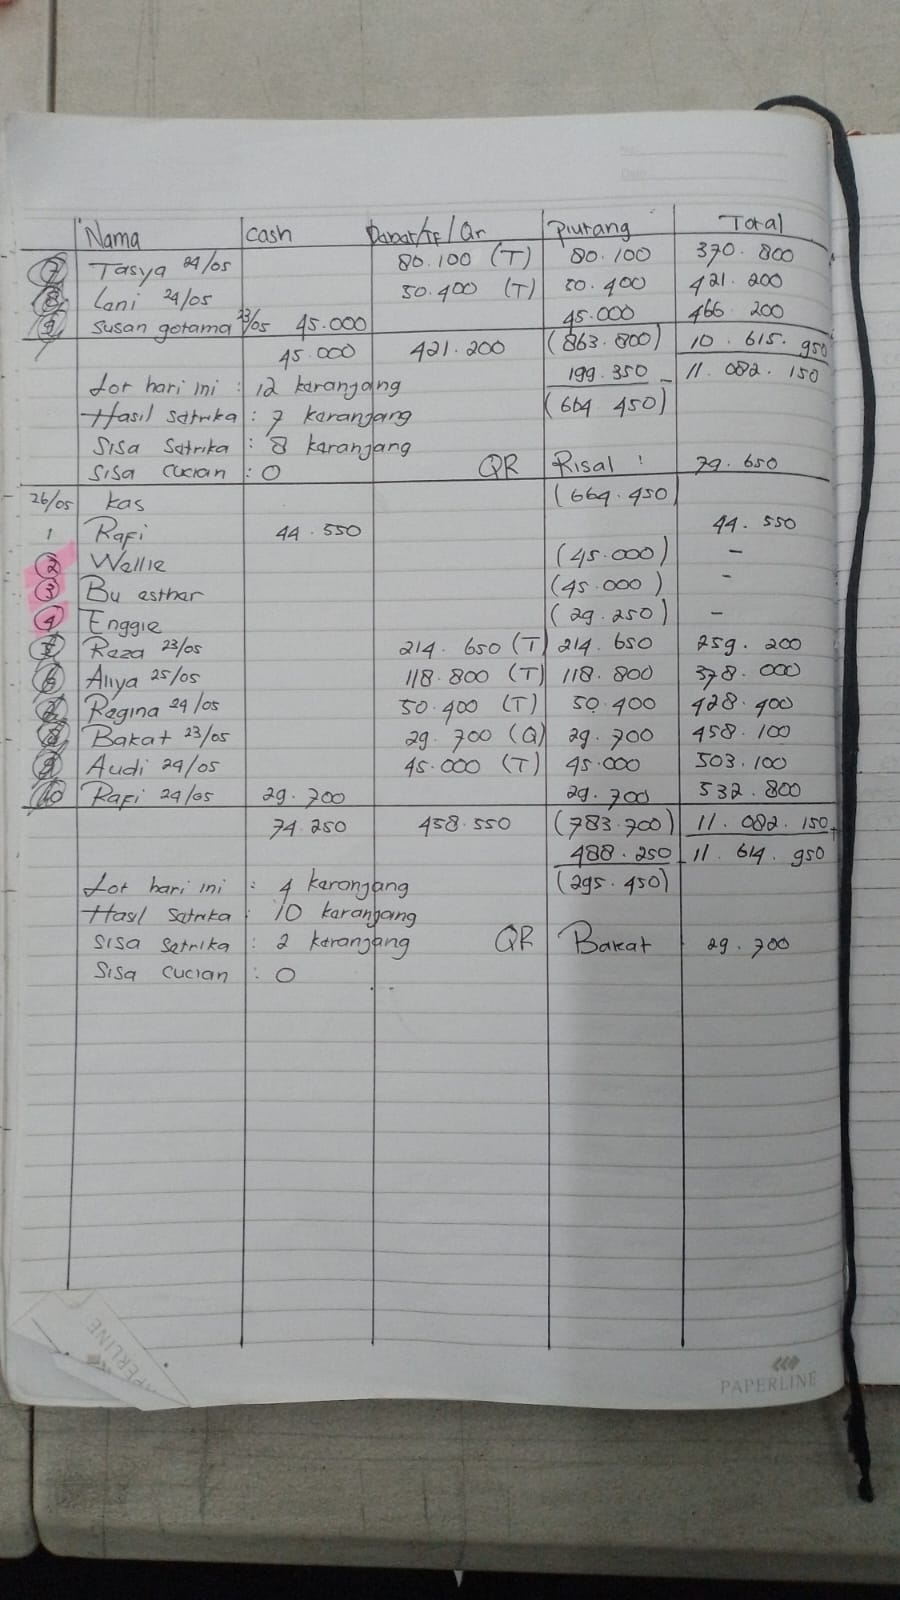 Nama Cash Dabat/TF/Qr Piutang Total
7 Tasya 24/05 80.100 (T) 80.100 370.800
8 Lani 24/05 50.400 (T) 50.400 421.200
9 Susan gotama 23/05 45.000 45.000 466.200
45.000 421.200 (863.800) 10.615.950
Lot hari ini : 12 karanjang 199.350 - 11.082.150
Hasil Satrika : 7 karanjang (664 450)
Sisa Satrika : 8 karanjang
Sisa Cucian : 0 QR Risal : 79.650
26/05 kas (664.450)
1 Rafi 44.550 44.550
2 Wellie (45.000) -
3 Bu esther (45.000) -
4 Enggie (29.250) -
5 Raza 23/05 214.650 (T) 214.650 259.200
6 Aliya 25/05 118.800 (T) 118.800 378.000
7 Regina 24/05 50.400 (T) 50.400 428.400
8 Bakat 23/05 29.700 (Q) 29.700 458.100
9 Audi 24/05 45.000 (T) 45.000 503.100
10 Rafi 24/05 29.700 29.700 532.800
74.250 458.550 (783.700) 11.082.150 +
488.250 - 11.614.950
Lot hari ini : 4 karanjang (295.450)
Hasil Satrika : 10 karanjang
Sisa Satrika : 2 karanjang QR Bakat 29.700
Sisa Cucian : 0
PAPERLINE
PAPERLINE